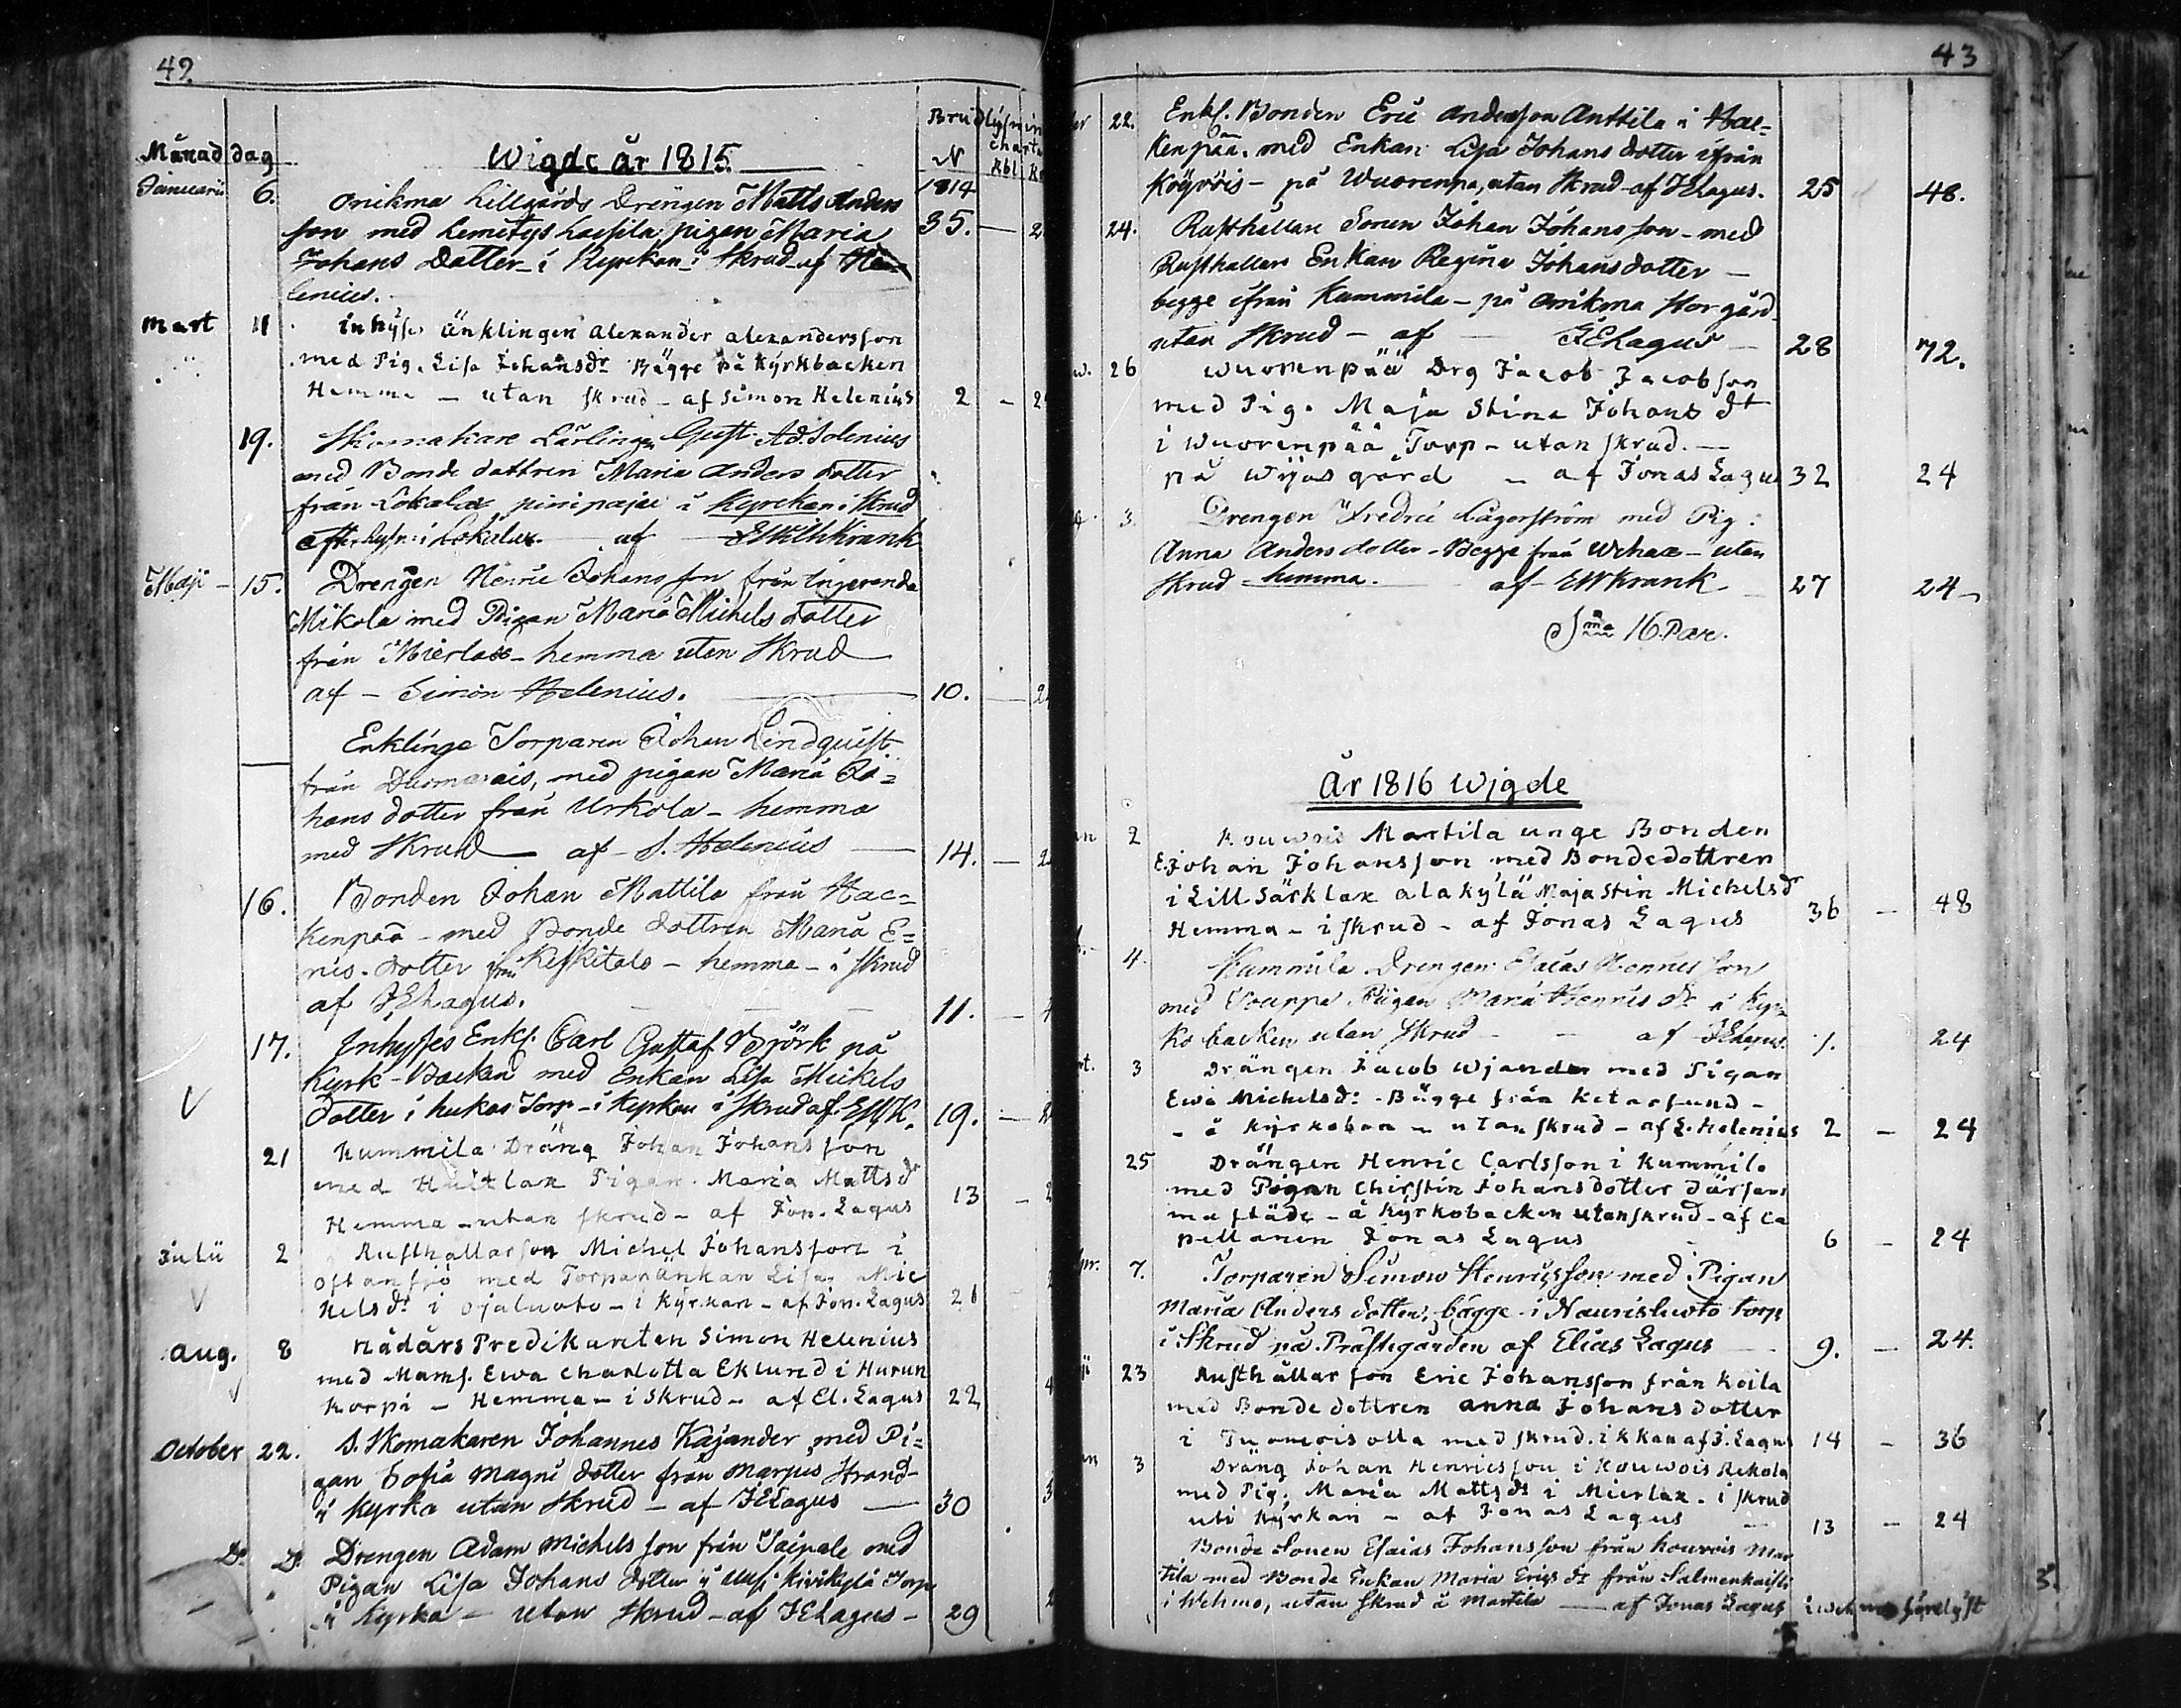 42.
Månad dag
Wigde år 1815
Brudlysnin
N
charta
Rbl
Januarii 6.
1814
Onikma Lillgårds Drengen Matts Anders
son med Lemetys Lassila pigan Maria 35.
Johans Dotter i Kyrkan i Skrud af He
lenius.
Mart 11
Inhyses Änklingen Alexander Alexandersson
med Pig. Lisa Johansdr Bägge på Kyrkbacken
Hemma - utan skrud - af Simon Helenius 2 -
19. Skomakare Lärlingen Gust. Ad. Solenius
med Bonde dottren Maria Anders dotter
från Lokalax pinipaju i Kyrckan i Skrud
efter Lysn. i Lokalax af EWilhKrank
Maji - 15. Drengen Henric Johansson från
Mikola med Pigan Maria Michels dotter
från Mierlax - hemma utan Skrud
af - Simon Helenius. 10.
Enklinge Torparen Johan Lindquist
från, med pigan Maria Jo=
hans dotter från Urkola - hemma
med Skrud af - S. Helenius 14.
16. Bonden Johan Mattila från Hac=
kenpää - med Bonde dottren Maria E=
rics dotter från Keskitalo - hemma - i skrud
af JELagus. 11.
17. Inhyses Enkl. Carl Gustaf Björk på
Kyrk-Backen med Enkan Lisa Mickels
V dotter i hukas Torp - i kyrkan i skrud af EWK. 19.
21 Kummila Dräng Johan Johansson
med Huitlax Pigan Maria Mattsdr
Hemma - utan skrud - af Jon. Lagus 13
Julii 2 Rusthållarson Michel Johansson i
Ostansjö med Torparänkan Lisa Mic
V helsdr i Ojaluoto - i Kyrkan - af Jon. Lagus 21
Aug. 8 Nådårs Predikanten Simon Helenius
med Mams. Ewa Charlotta Eklund i Hurun
V korpi - Hemma - i skrud - af El. Lagus 22
October 22. S. Skomakaren Johannes Kajander med Pi=
gan Sofia Magni dotter från Marjus Strand-
i kyrka utan skrud - af JELagus 30
Do Do Drengen Adam Michelsson från Taipale med
Pigan Lisa Johans dotter i Uusi kivikylä Torp
i kyrka - utan skrud - af JELagus - 29
43
22. Enkl. Bonden Eric Andersson Anttila i Hac=
kenpää. med Enkan Lisa Johans dotter ifrån
Köyvöis - på Wuorenpä, utan Skrud - af JELagus. 25 48.
24. Rusthållare Sonen Johan Johansson - med
Rusthållare Enkan Regina Johansdotter -
begge ifrån Kummila - på Onikma Storgård
utan Skrud - af JELagus 28 72.
26 Wuorenpää Drg Jacob Jacobson
med Pig. Maja Stina Johans dr
i Wuorenpää Torp - utan skrud. -
på Wijas gård - af Jonas Lagus 32 24
3. Drengen Fredric Lagerström med Pig:
Anna Anders dotter - Begge från Wehax - utan
Skrud hemma. af EWKrank 27 24
Sma 16. Par.
År 1816 Wigde
2 Kouwois Martila unge Bonden
E. Johan Johansson med Bondedottren
i Lill Särklax alakylä Maja Stin Michelsdr
Hemma - i skrud - af Jonas Lagus 36 - 48
4. Kummila Drengen Esaias Hennicsson
med Pigan Maria Henrics dr å Kyr=
kobacken utan skrud - af JELagus. 1. 24
3 Drängen Jacob Wjander med Pigan
Ewa Michelsdr: Bägge från Ketarsund -
- å kyrkoban - utan skrud - af S. Helenius 2 - 24
25 Drängen Henric Carlsson i Kummila
med Pigan Chirstin Johansdotter därsam
ma städe - å Kyrkobacken utan skrud - af Ca
pellanen Jonas Lagus 6 - 24
7. Torparen Simon Henrigsson med Pigan
Maria Anders dotter, bägge i Naurisluoto torp
i Skrud på Prästegården af Elias Lagus 9. - 24.
23 Rusthållarson Eric Johansson från Koila
med Bondedottren Anna Johansdotter
i Tuomoisolla med skrud. i kkan af J. Lagus 14 - 36
3 Dräng Johan Henricsson i Kouwois Rekola
med Pig. Maria Mattsdr i Mierlax. i skrud
uti Kyrkan - af Jonas Lagus 13 - 24
Bonde Sonen Esaias Johansson från Kouvois Mar
tila med Bonde Enkan Maria Erics dr från Salmenkaisti
i Wehmo, utan skrud å Martila - af Jonas Lagus i Wehmo förelyst